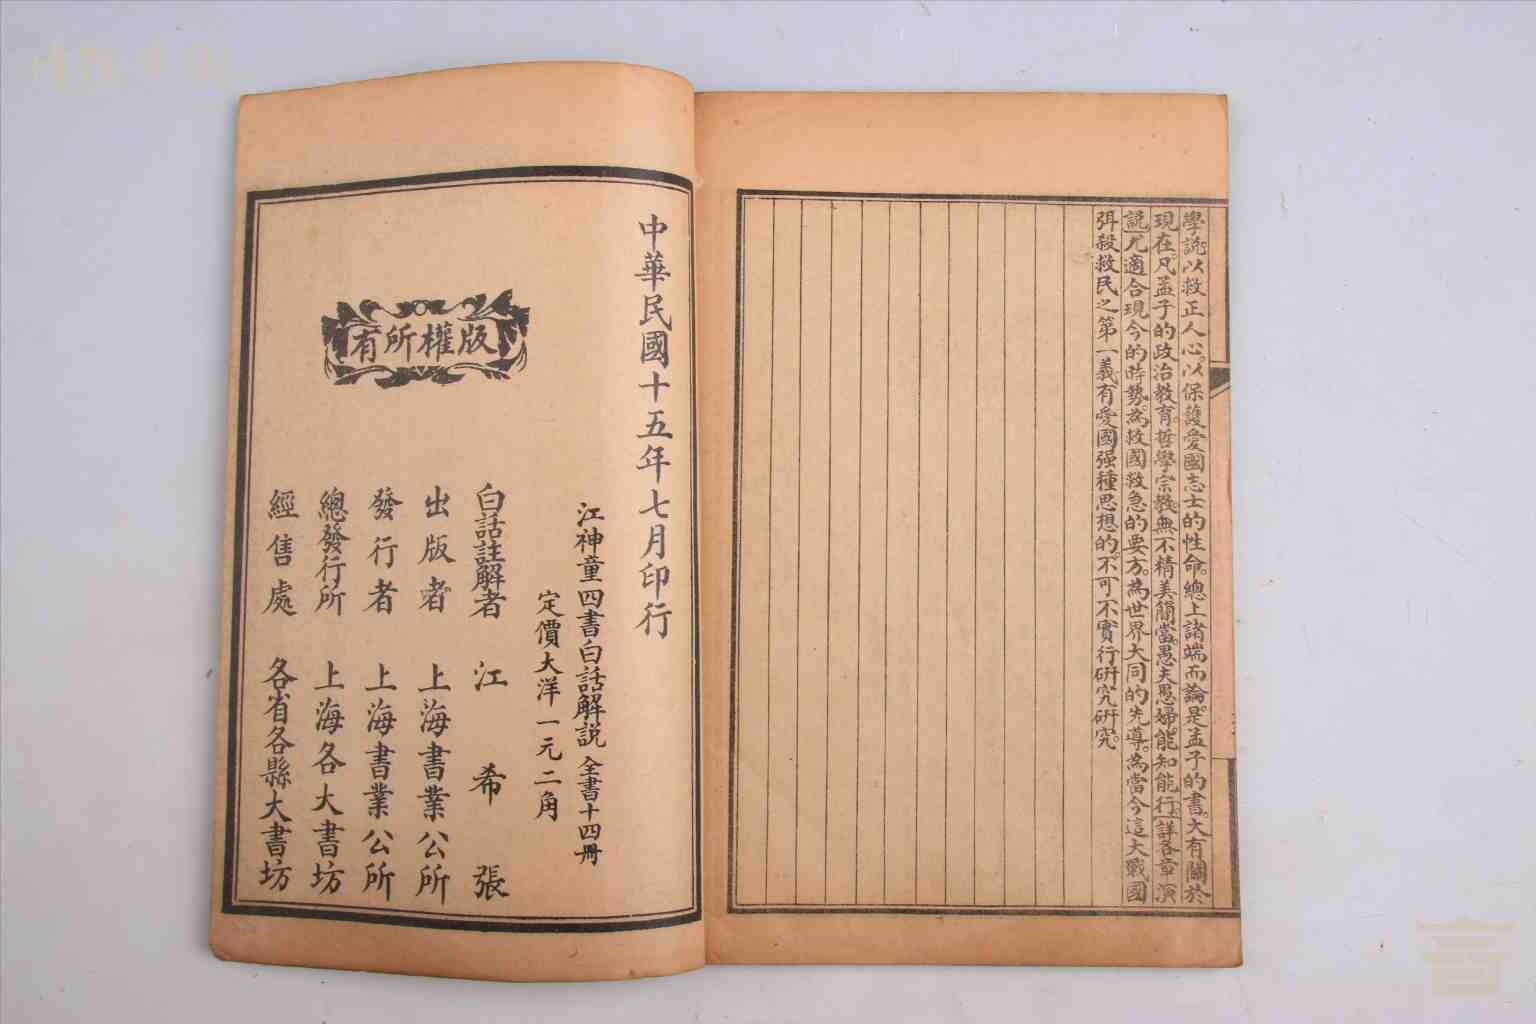 學說以救正人心。以保護愛國志士的性命。總上諸端而論。是孟子的書。大有關於
現在。凡孟子的政治教育。哲學宗教。無不精美簡當。愚夫愚婦。能知能行。詳各章演
說。尤適合現今的時勢。為救國救急的要方。為世界大同的先導。為當今這大戰國
弭殺救民之第一義。有愛國强種思想的。不可不實行研究研究。
中華民國十五年七月印行
江神童四書白話解説 全書十四冊
定價大洋一元二角
版權所有
白話註解者 江希張
出版者 上海書業公所
發行者 上海書業公所
總發行所 上海各大書坊
經售處 各省各縣大書坊